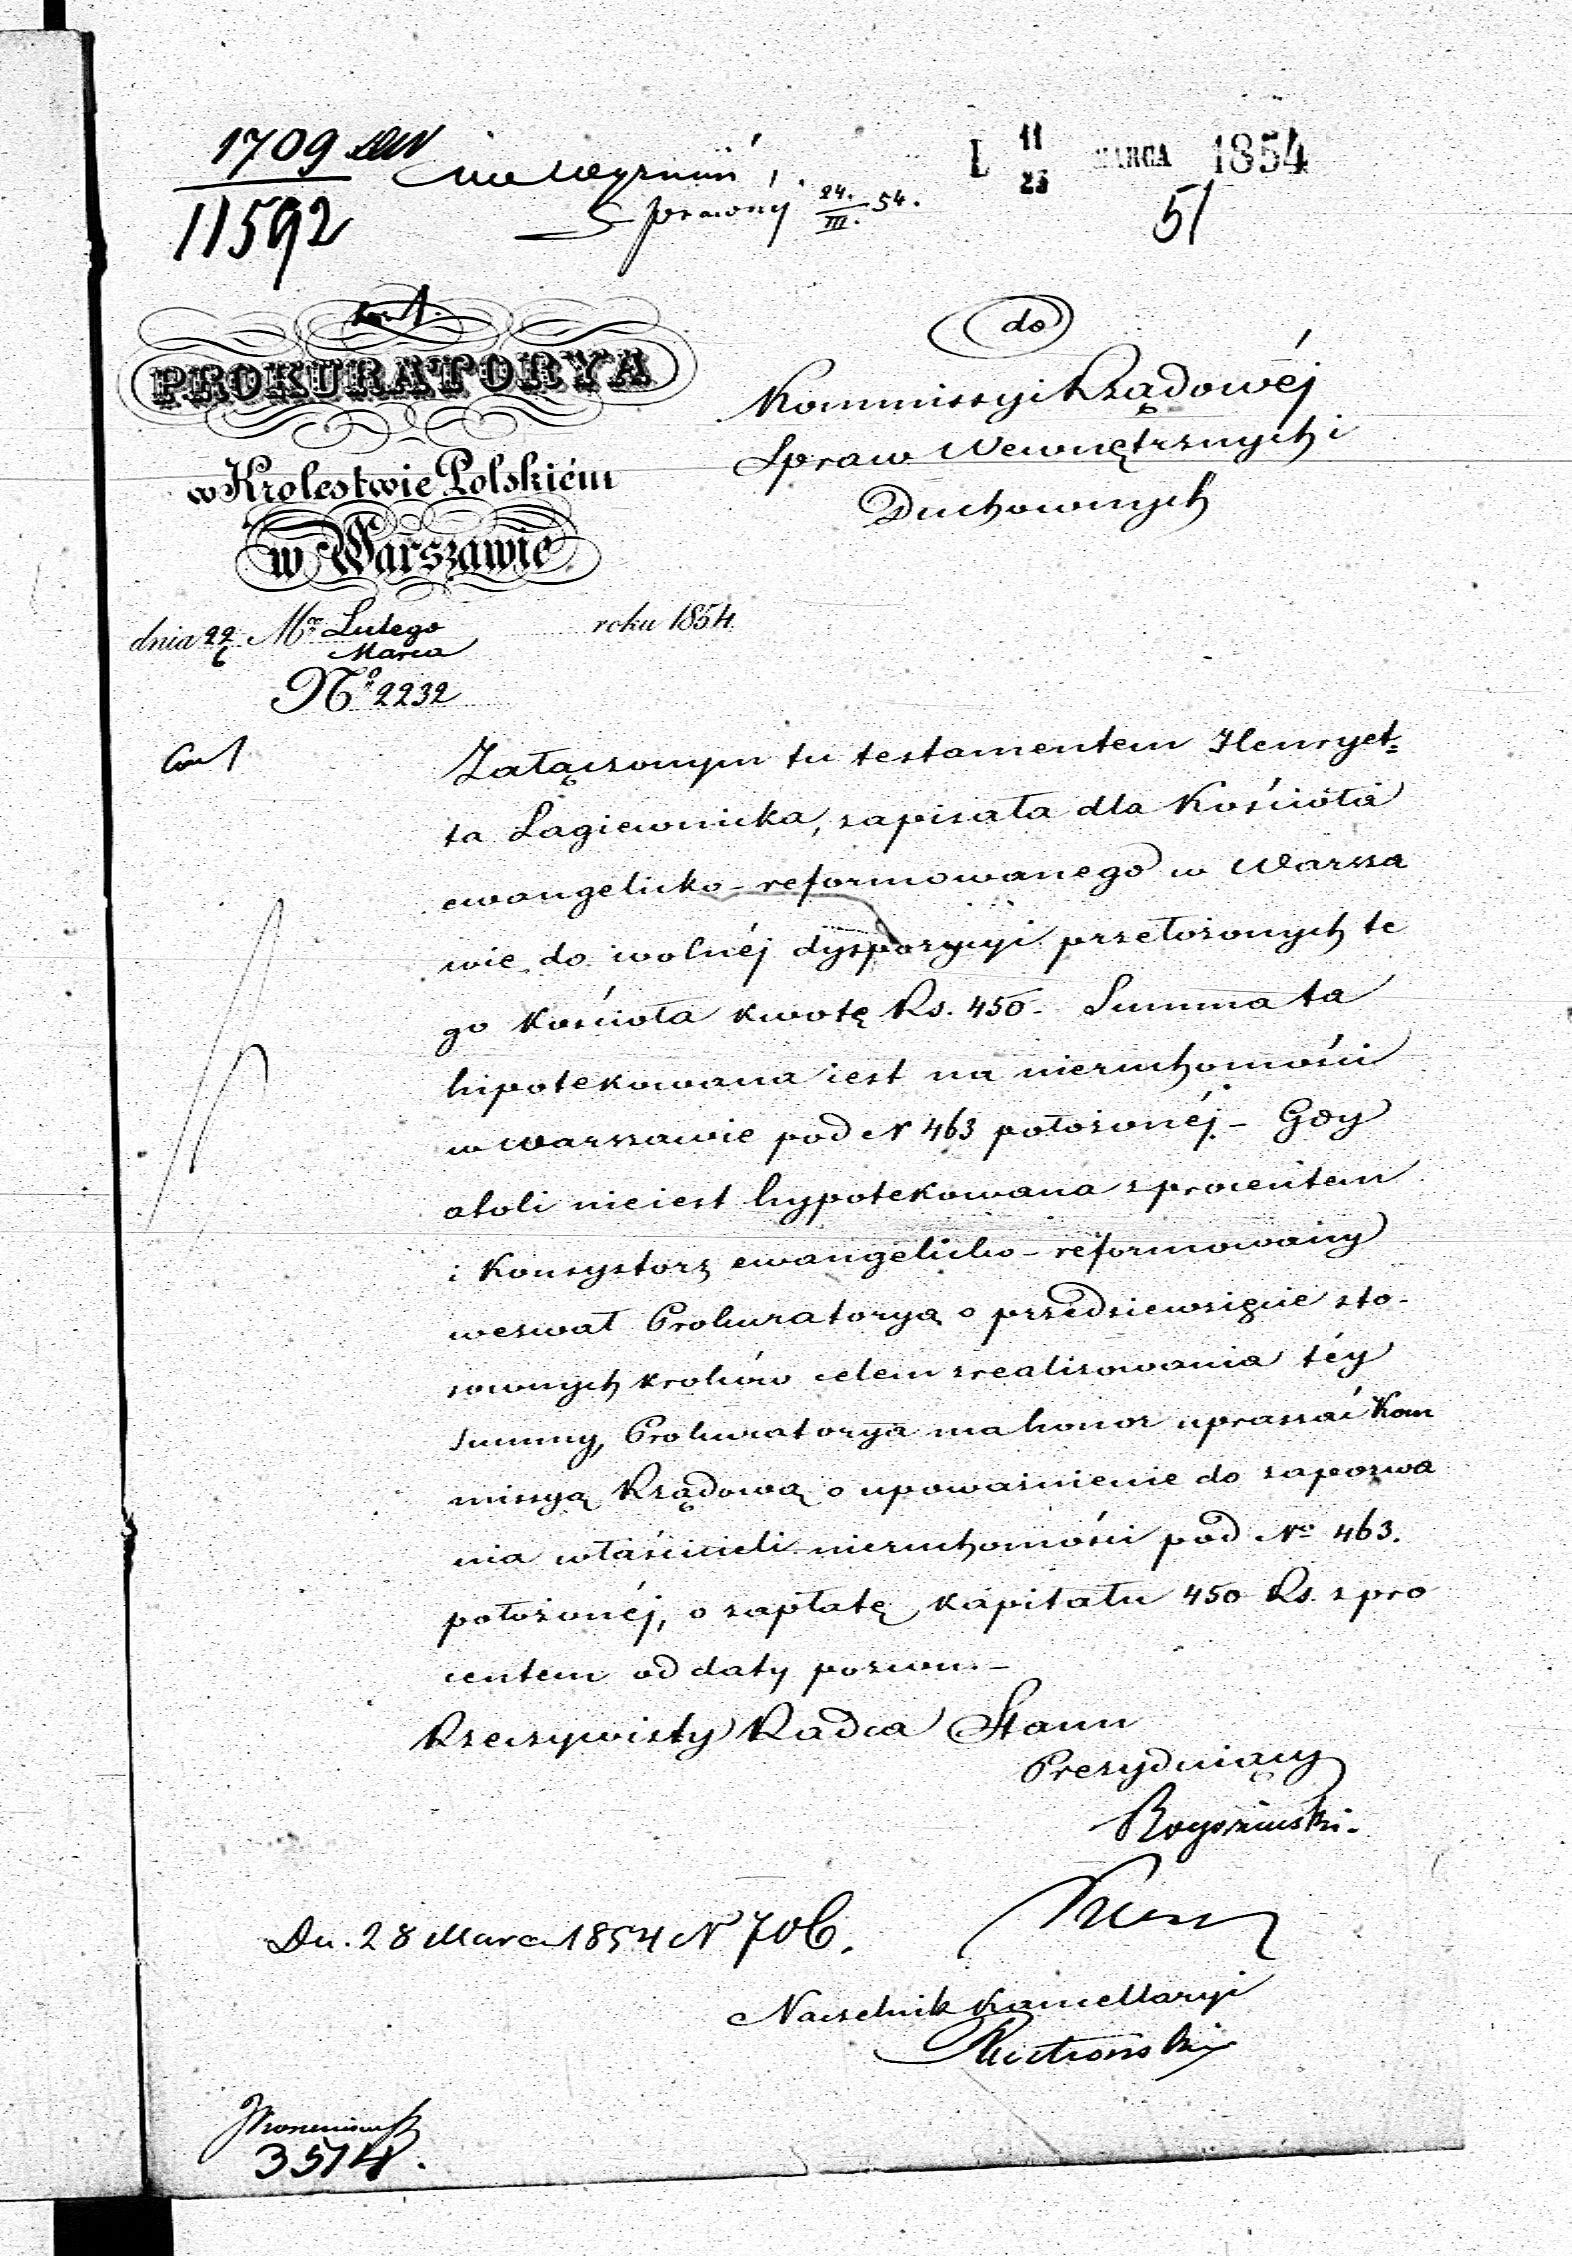 1709
11592
24. III. 54.
L 11/23 MARCA 1854
51
PROKURATORYA
w Krolestwie Polskiém
w Warszawie
dnia 22/6 Mca Lutego/Marca roku 1854
No 2232
do
Kommissyi Rządowéj
Spraw Wewnętrznych i
Duchownych
Załączonym tu testamentem Henryet=
ta Łagiewnicka, zapisała dla Kościoła
ewangelicko-reformowanego w Warsza
wie do wolnéj dyspozycyi przełożonych te
go Kościoła kwotę Rs. 450. Summa ta
hipotekowana iest na nieruchomości
w Warszawie pod N 463 położonéj. – Gdy
atoli nieiest hypotekowana z procentem
i Konsystorz ewangelicko-reformowany
wezwał Prokuratoryą o przedsiewzięcie sto-
sownych kroków celem zrealizowania téy
summy, Prokuratorya ma honor upraszać Kom
missyą Rządową o upoważnienie do zapozwa
nia właścicieli nieruchomości pod No 463.
położonéj, o zapłatę kapitału 450 Rs. z pro
centem od daty pozwu. –
Rzeczywisty Radca Stanu
Prezyduiący
Rogoziński.
Dn. 28 Marca 1854 N 706.
Naczelnik Kancellaryi
3514.